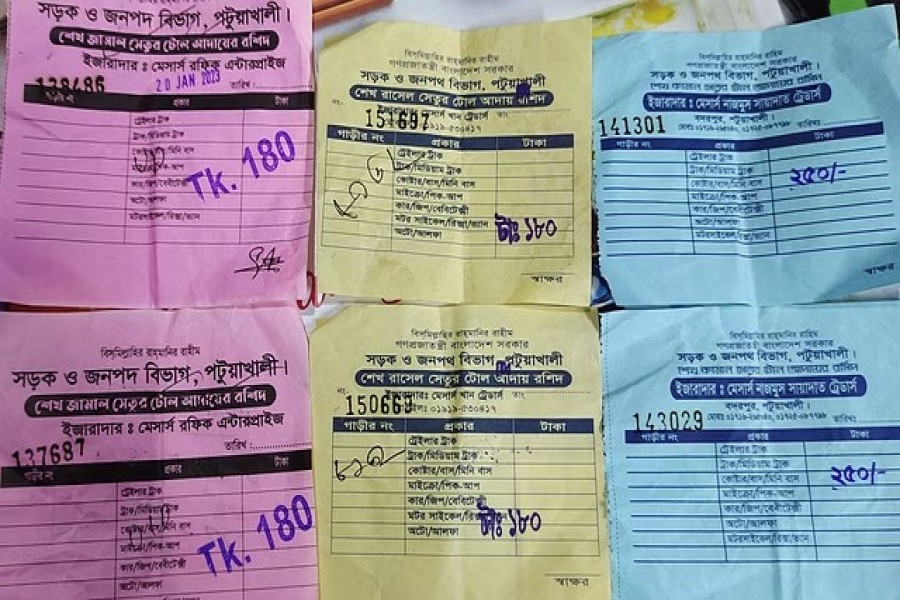 সড়ক ও জনপদ বিভাগ, পটুয়াখালী।
শেখ জামাল সেতুর টোল আদায়ের রশিদ
ইজারাদার : মেসার্স রফিক এন্টারপ্রাইজ
138486
20 JAN 2023
তারিখ :
গাড়ীর নং প্রকার টাকা
ট্রেইলার ট্রাক
ট্রাক/মিডিয়াম ট্রাক
মাইক্রো/পিক-আপ
কার/জিপ/বেবীটেক্সী
অটো/আলফা
মটরসাইকেল/রিক্সা/ভ্যান
Tk. 180
বিস্‌মিল্লাহির রাহমানির রাহীম
গণপ্রজাতন্ত্রী বাংলাদেশ সরকার
সড়ক ও জনপথ বিভাগ, পটুয়াখালী
শেখ রাসেল সেতুর টোল আদায় রশিদ
নং-
151697
মেসার্স খান ট্রেডার্স
০১৯১৯-৫৩০৪১৭
গাড়ীর নং প্রকার টাকা
ট্রেইলার ট্রাক
ট্রাক/মিডিয়াম ট্রাক
কোষ্টার/বাস/মিনি বাস
মাইক্রো/পিক-আপ
কার/জিপ/বেবিটেক্সী
মটর সাইকেল/রিক্সা/ভ্যান
অটো/আলফা
টাঃ ১৮০
স্বাক্ষর
বিস্‌মিল্লাহির রাহমানির রাহীম
গণপ্রজাতন্ত্রী বাংলাদেশ সরকার
সড়ক ও জনপথ বিভাগ, পটুয়াখালী।
ইজারাদার : মেসার্স নাজমুস সায়াদাত ট্রেডার্স
বদরপুর, পটুয়াখালী।
141301
তারিখ:
গাড়ীর নং প্রকার টাকা
ট্রেইলার ট্রাক
ট্রাক/মিডিয়াম ট্রাক
কোষ্টার/বাস/মিনি বাস
মাইক্রো/পিক-আপ
কার/জিপ/বেবীটেক্সী
অটো/আলফা
মটরসাইকেল/রিক্সা/ভ্যান
২৫০/-
স্বাক্ষর
বিস্‌মিল্লাহির রাহমানির রাহীম
সড়ক ও জনপদ বিভাগ, পটুয়াখালী।
শেখ জামাল সেতুর টোল আদায়ের রশিদ
ইজারাদার : মেসার্স রফিক এন্টারপ্রাইজ
137687
তারিখ :
গাড়ীর নং প্রকার টাকা
ট্রেইলার ট্রাক
ট্রাক/মিডিয়াম ট্রাক
কোষ্টার/বাস/মিনি বাস
মাইক্রো/পিক-আপ
কার/জিপ/বেবীটেক্সী
অটো/আলফা
Tk. 180
বিস্‌মিল্লাহির রাহমানির রাহীম
গণপ্রজাতন্ত্রী বাংলাদেশ সরকার
সড়ক ও জনপথ বিভাগ, পটুয়াখালী
শেখ রাসেল সেতুর টোল আদায় রশিদ
নং-
ইজারাদার: মেসার্স খান ট্রেডার্স তাং
০১৯১৯-৫৩০৪১৭
গাড়ীর নং প্রকার টাকা
ট্রেইলার ট্রাক
ট্রাক/মিডিয়াম ট্রাক
কোষ্টার/বাস/মিনি বাস
মাইক্রো/পিক-আপ
কার/জিপ/বেবিটেক্সী
মটর সাইকেল
অটো/আলফা
টাঃ ১৮০
স্বাক্ষর
বিস্‌মিল্লাহির রাহমানির রাহীম
গণপ্রজাতন্ত্রী বাংলাদেশ সরকার
সড়ক ও জনপথ বিভাগ, পটুয়াখালী।
ইজারাদার : মেসার্স নাজমুস সায়াদাত ট্রেডার্স
বদরপুর, পটুয়াখালী।
143029
তারিখ:
গাড়ীর নং প্রকার টাকা
ট্রেইলার ট্রাক
ট্রাক/মিডিয়াম ট্রাক
কোষ্টার/বাস/মিনি বাস
মাইক্রো/পিক-আপ
কার/জিপ/বেবীটেক্সী
অটো/আলফা
মটরসাইকেল/রিক্সা/ভ্যান
২৫০/-